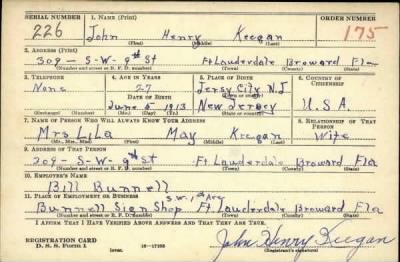 SERIAL NUMBER 1. NAME (Print) ORDER NUMBER
226 John Henry Keegan 175
(First) (Middle) (Last)
2. ADDRESS (Print)
309 - S-W-9th St Ft Lauderdale Broward Fla
(Number and street or R. F. D. number) (Town) (County) (State)
3. TELEPHONE 4. AGE IN YEARS 5. PLACE OF BIRTH 6. COUNTRY OF CITIZENSHIP
None 27 Jersy City N.J
DATE OF BIRTH (Town or county)
June 5 1913 New Jersey U.S.A.
(Mo.) (Day) (Yr.) (State or country)
7. NAME OF PERSON WHO WILL ALWAYS KNOW YOUR ADDRESS 8. RELATIONSHIP OF THAT PERSON
Mrs Lila May Keegan Wife
(Mr., Mrs., Miss) (First) (Middle) (Last)
9. ADDRESS OF THAT PERSON
309 - S-W-9th St Ft Lauderdale Broward Fla
(Number and street or R. F. D. number) (Town) (County) (State)
10. EMPLOYER'S NAME
Bill Bunnell
11. PLACE OF EMPLOYMENT OR BUSINESS S.W. 1st Ave
Bunnell Sign Shop Ft. Lauderdale Broward Fla
(Number and street or R. F. D. number) (Town) (County) (State)
I AFFIRM THAT I HAVE VERIFIED ABOVE ANSWERS AND THAT THEY ARE TRUE.
REGISTRATION CARD
D. S. S. FORM 1 (over) 16-17105
John Henry Keegan
(Registrant's signature)